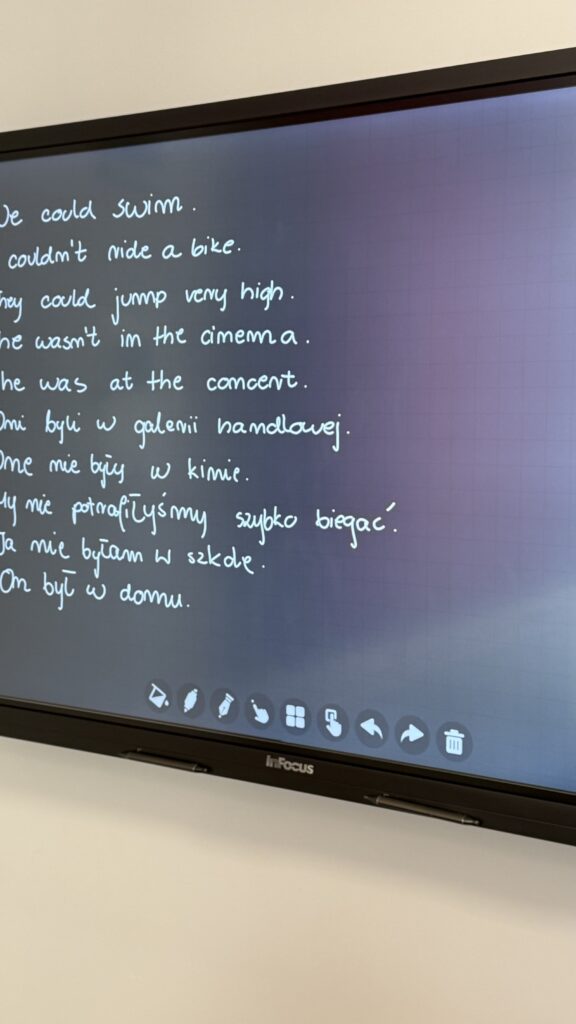 We could swim.
couldn't ride a bike.
hey could jump very high.
he wasn't in the cinema.
he was at the concert.
Oni byli w galerii handlowej.
One nie były w kinie.
My nie potrafiłyśmy szybko biegać.
Ja nie byłam w szkole.
On był w domu.
InFocus